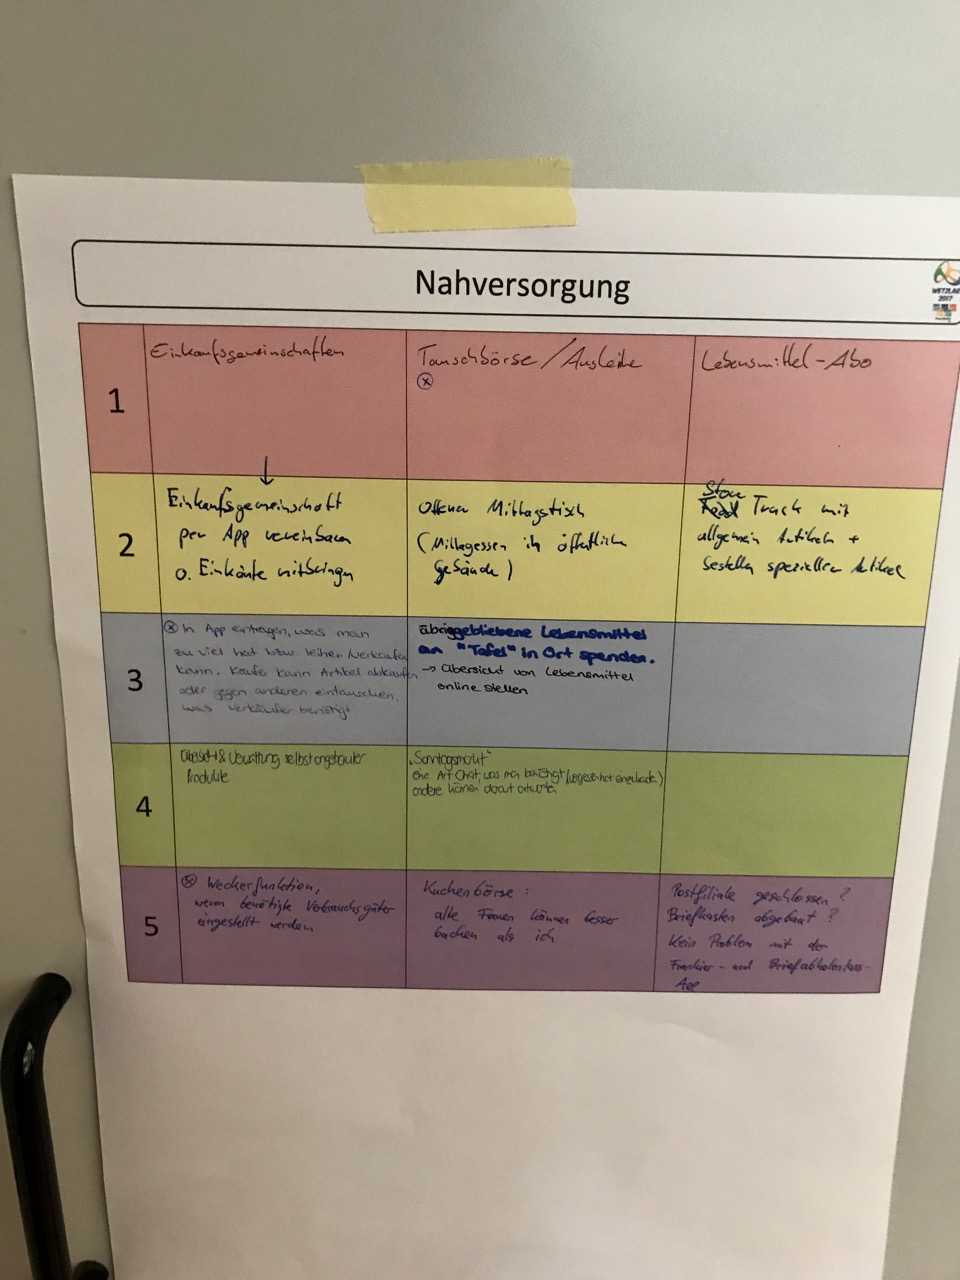 Nahversorgung
WETZLAR
2017
1
Einkaufsgemeinschaften
Tauschbörse / Ausleihe
ⓧ
Lebensmittel-Abo
2
↓
Einkaufsgemeinschaft
per App vereinbaren
o. Einkäufe mitbringen
Offener Mittagstisch
(Mittagessen in öffentlich
Gebäude)
Store
Truck mit
allgemein Artikeln +
bestellen spezieller Artikel
3
ⓧ In App eintragen, was man
zu viel hat bzw. leihen/verkaufen
kann. Käufer kann Artikel abkaufen
oder gegen anderen eintauschen,
was Verkäufer benötigt
übriggebliebene Lebensmittel
an "Tafel" in Ort spenden.
→ Übersicht von Lebensmittel
online stellen
4
Übersicht & selbstangebauter
Produkte
eine Art Chat, was man benötigt
andere können darauf antworten
5
ⓧ Weckerfunktion,
wenn benötigte Verbrauchsgüter
eingestellt werden
Kuchenbörse :
alte Frauen können besser
backen als ich
Postfiliale geschlossen ?
Briefkasten abgebaut ?
Kein Problem mit der
Frankier- und
App